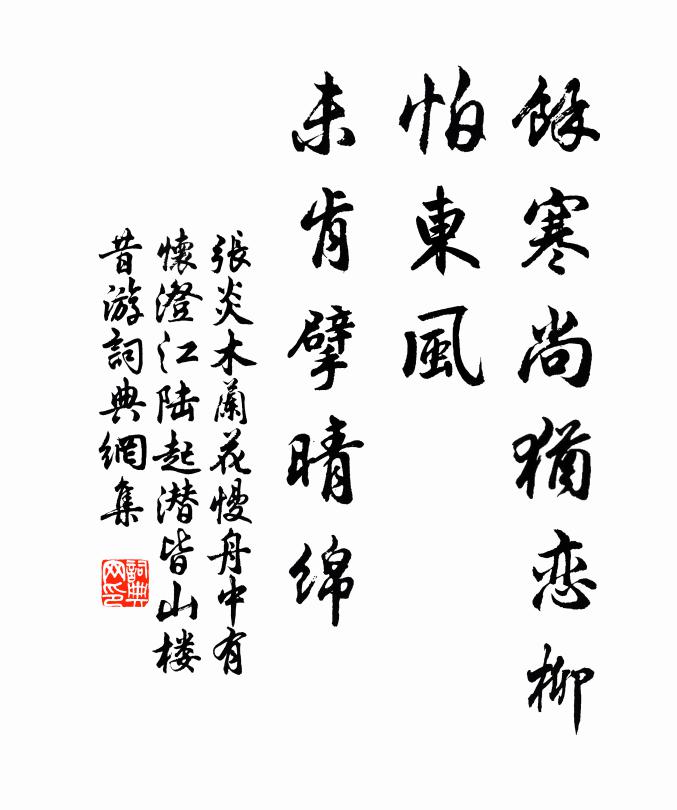 餘寒尚猶恋柳
怕東風
未肯擘晴綿
張炎木蘭花慢舟中有
懷澄江陆起潜皆山楼
昔游詞典網集
詞典网印